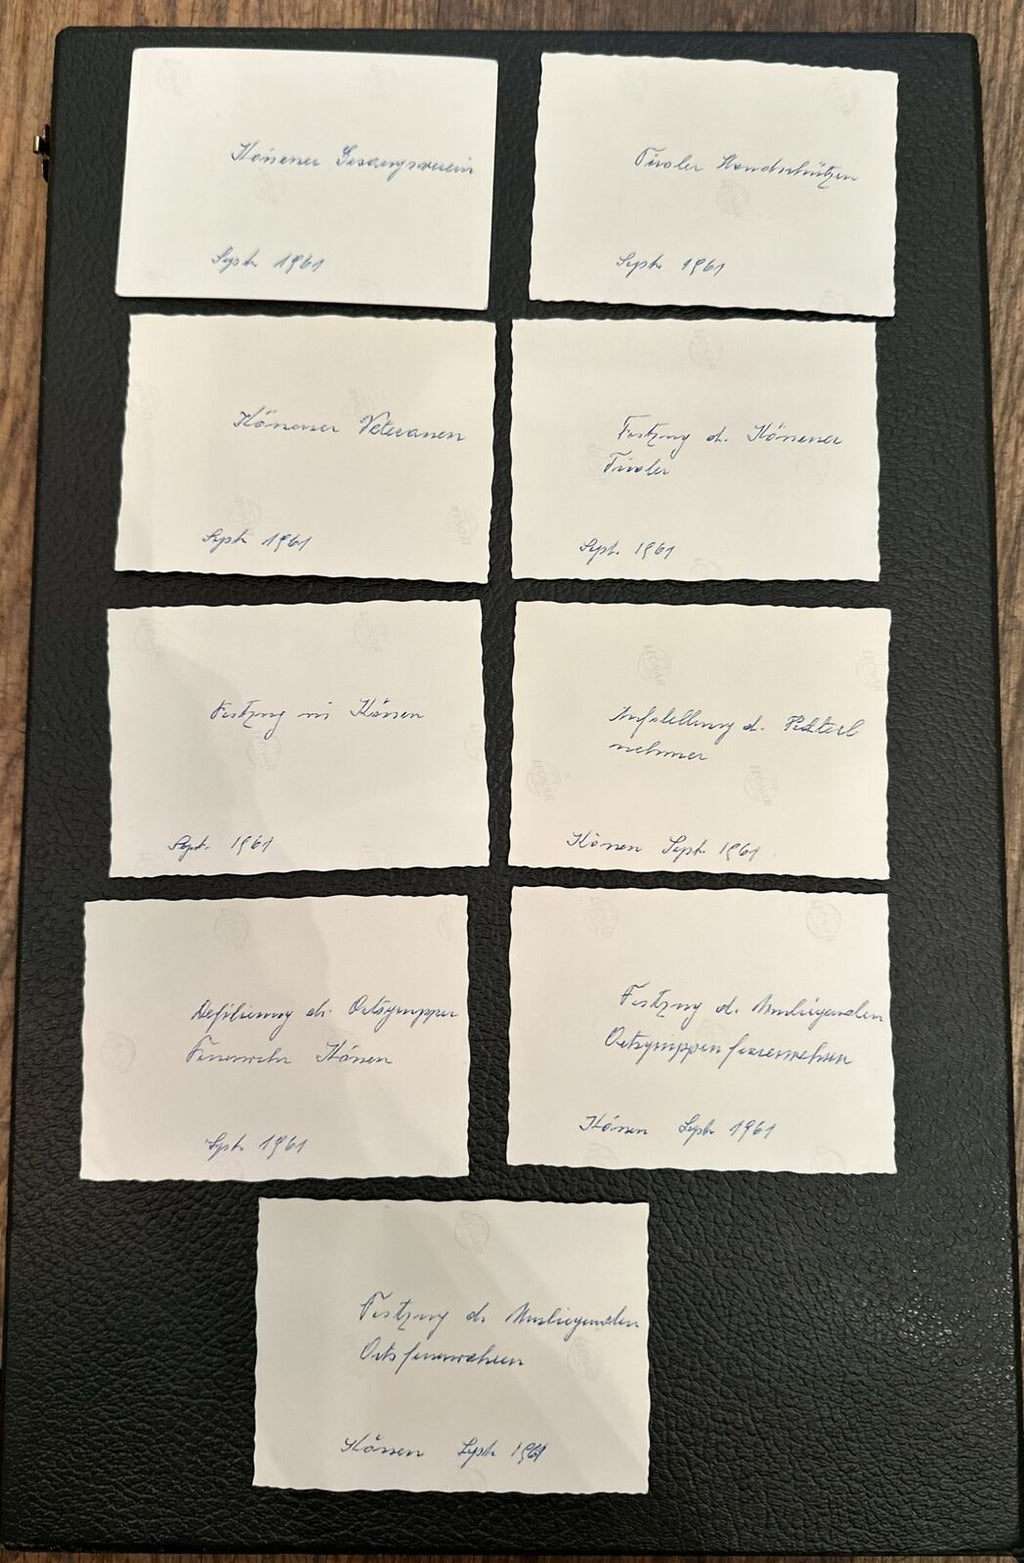 Kössener Gesangsverein
Sept. 1961
Tiroler Standschützen
Sept. 1961
Kössener Veteranen
Sept. 1961
Festzug d. Kössener
Tiroler
Sept. 1961
Festzug in Kössen
Sept. 1961
Aufstellung d. Festteil
nehmer
Kössen Sept. 1961
Defilierung d. Ortsgruppe
Feuerwehr Kössen
Sept. 1961
Festzug d. Umliegenden
Ortsgruppenfeuerwehren
Kössen Sept. 1961
Festzug d. Umliegenden
Ortsfeuerwehren
Kössen Sept. 1961